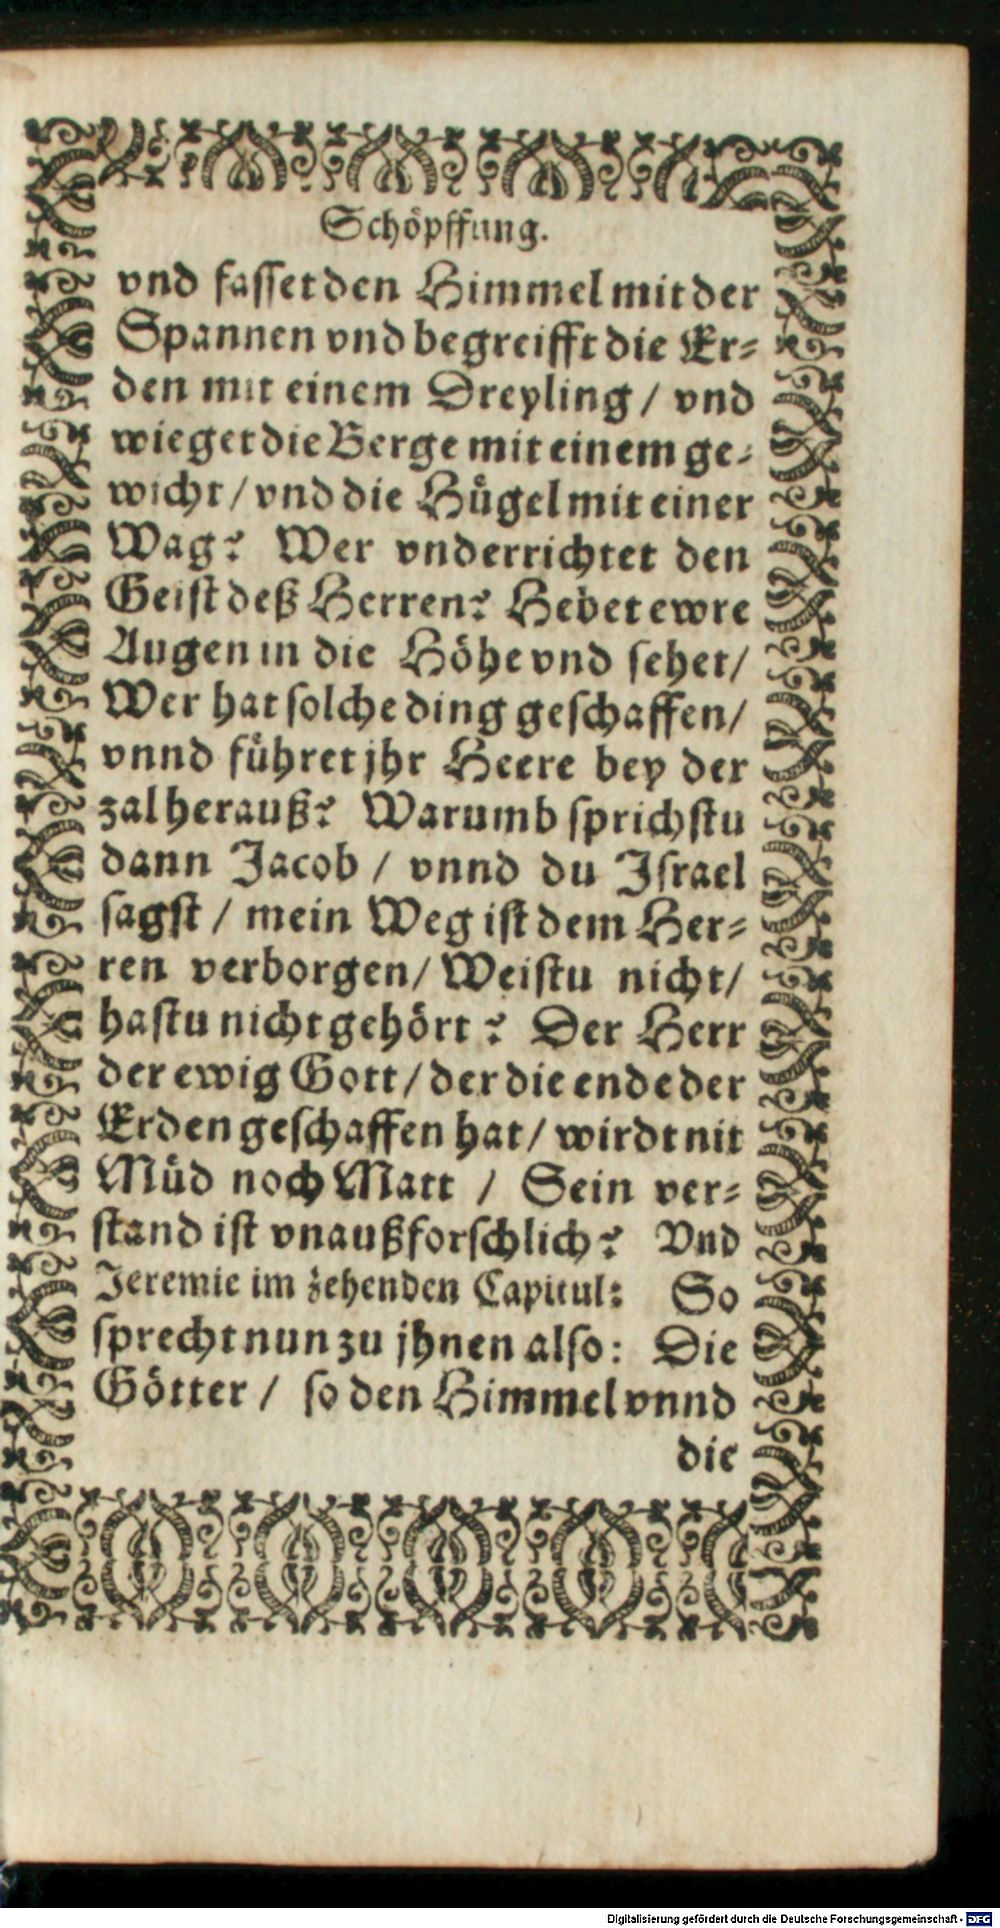 Schöpffung.
vnd fasset den Himmel mit der
Spannen vnd begreifft die Er-
den mit einem Dreyling / vnd
wieget die Berge mit einem ge-
wicht / vnd die Hügel mit einer
Wag? Wer vnderrichtet den
Geist deß Herren? Hebet ewre
Augen in die Höhe vnd sehet /
Wer hat solche ding geschaffen /
vnnd führet jhr Heere bey der
zal herauß? Warumb sprichstu
dann Jacob / vnnd du Israel
sagst / mein Weg ist dem Her-
ren verborgen / Weistu nicht /
hastu nicht gehört? Der Herr
der ewig Gott / der die ende der
Erden geschaffen hat / wirdt nit
Müd noch Matt / Sein ver-
stand ist vnaußforschlich? Vnd
Jeremie im zehenden Capitul: So
sprecht nun zu jhnen also: Die
Götter / so den Himmel vnnd
die
Digitalisierung gefördert durch die Deutsche Forschungsgemeinschaft - DFG